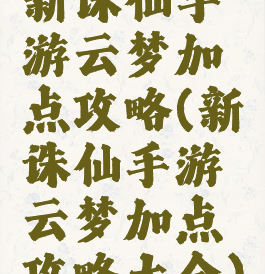 新诛仙手
游云梦加
点攻略(新
诛仙手游
云梦加点
攻略大全)